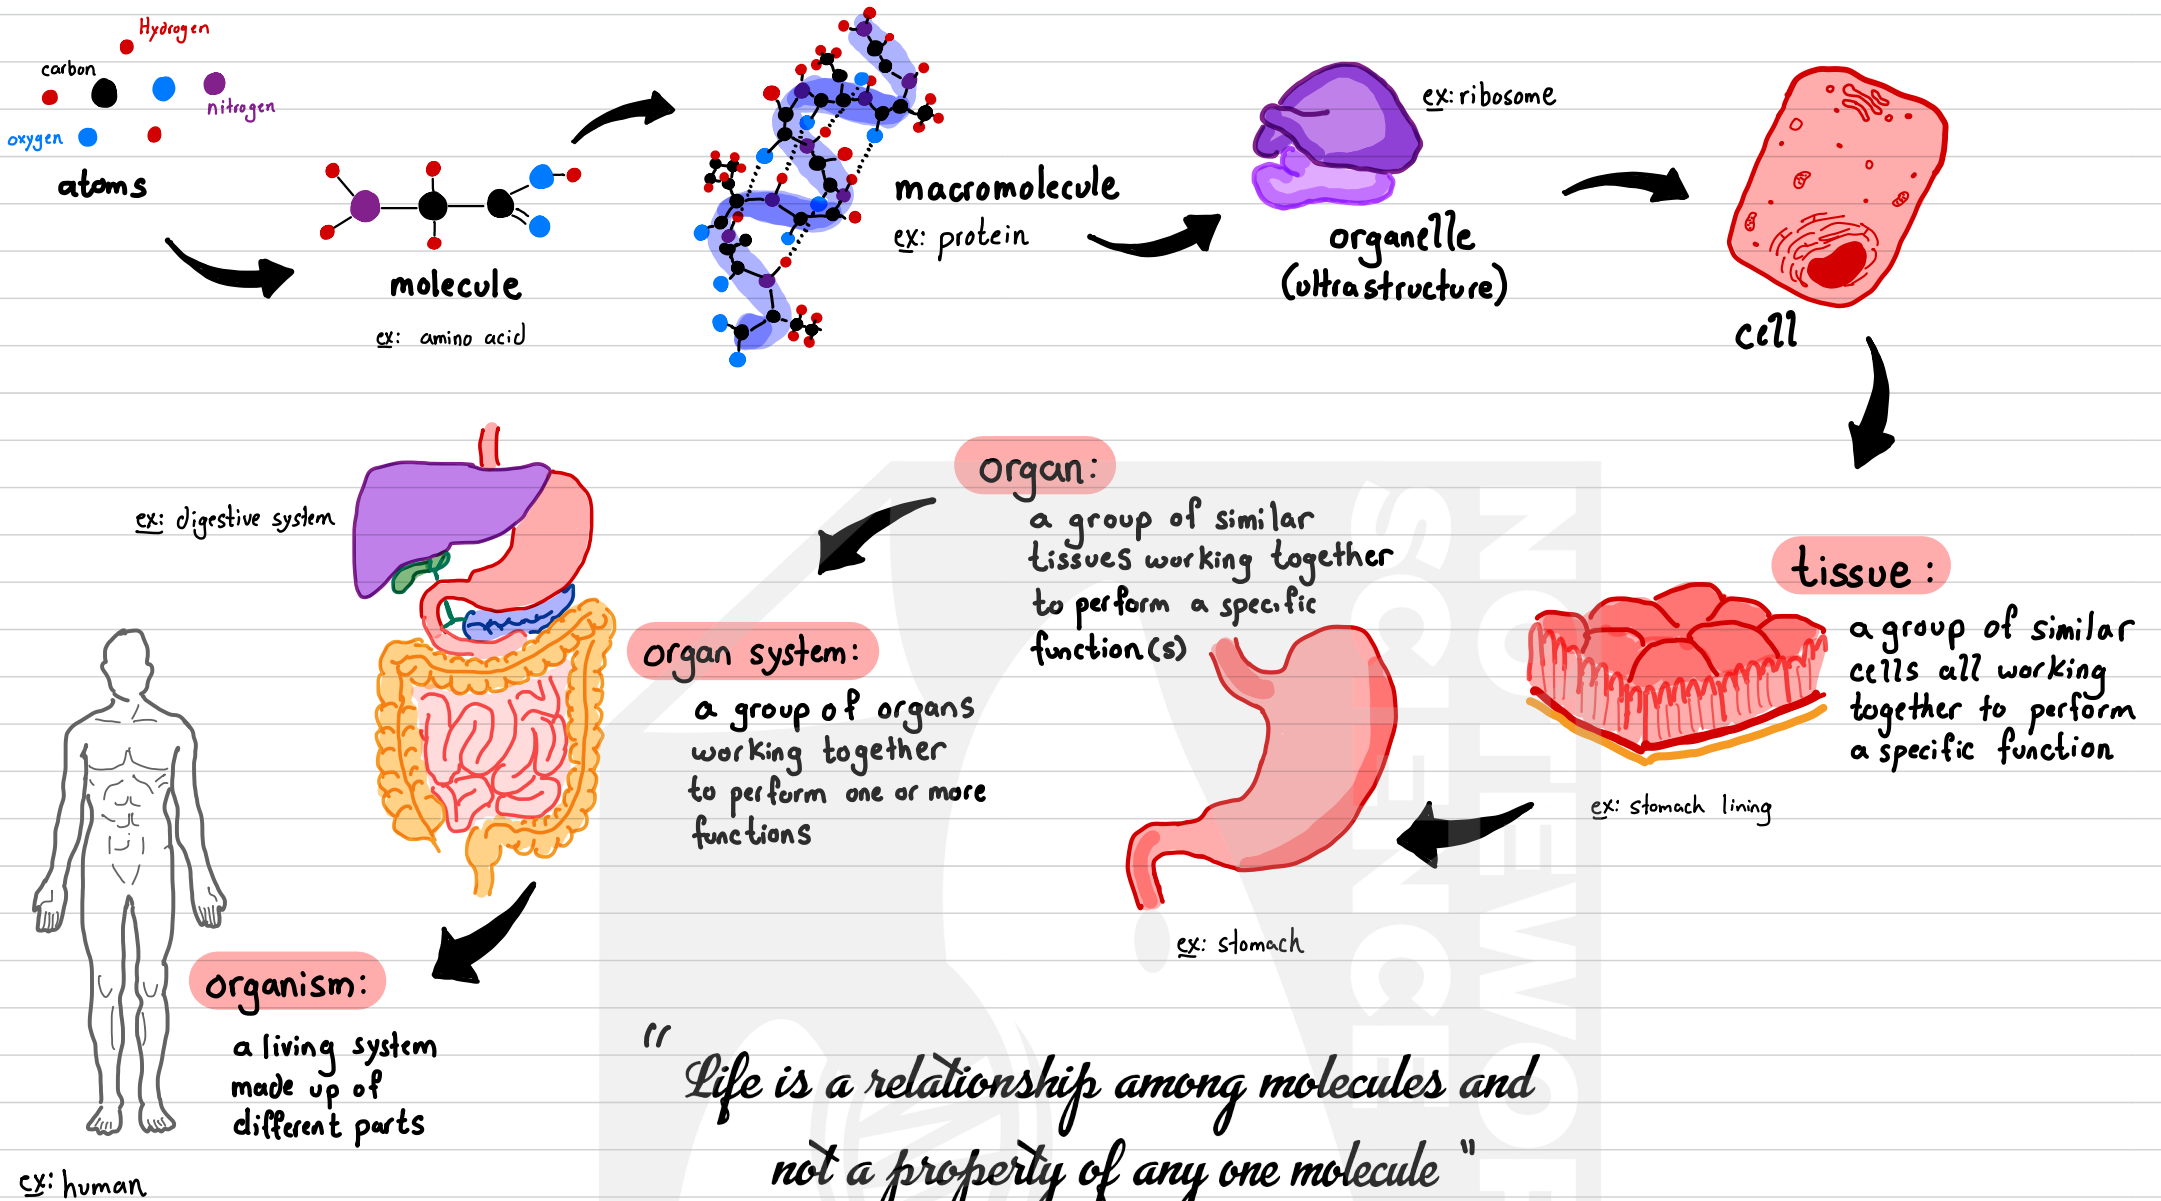 Hydrogen
carbon
nitrogen
oxygen
atoms
molecule
ex: amino acid
macromolecule
ex: protein
ex: ribosome
organelle
(ultrastructure)
cell
tissue:
a group of similar
cells all working
together to perform
a specific function
ex: stomach lining
organ:
a group of similar
tissues working together
to perform a specific
function(s)
ex: stomach
ex: digestive system
organ system:
a group of organs
working together
to perform one or more
functions
organism:
a living system
made up of
different parts
ex: human
"Life is a relationship among molecules and
not a property of any one molecule"
SCIENCE